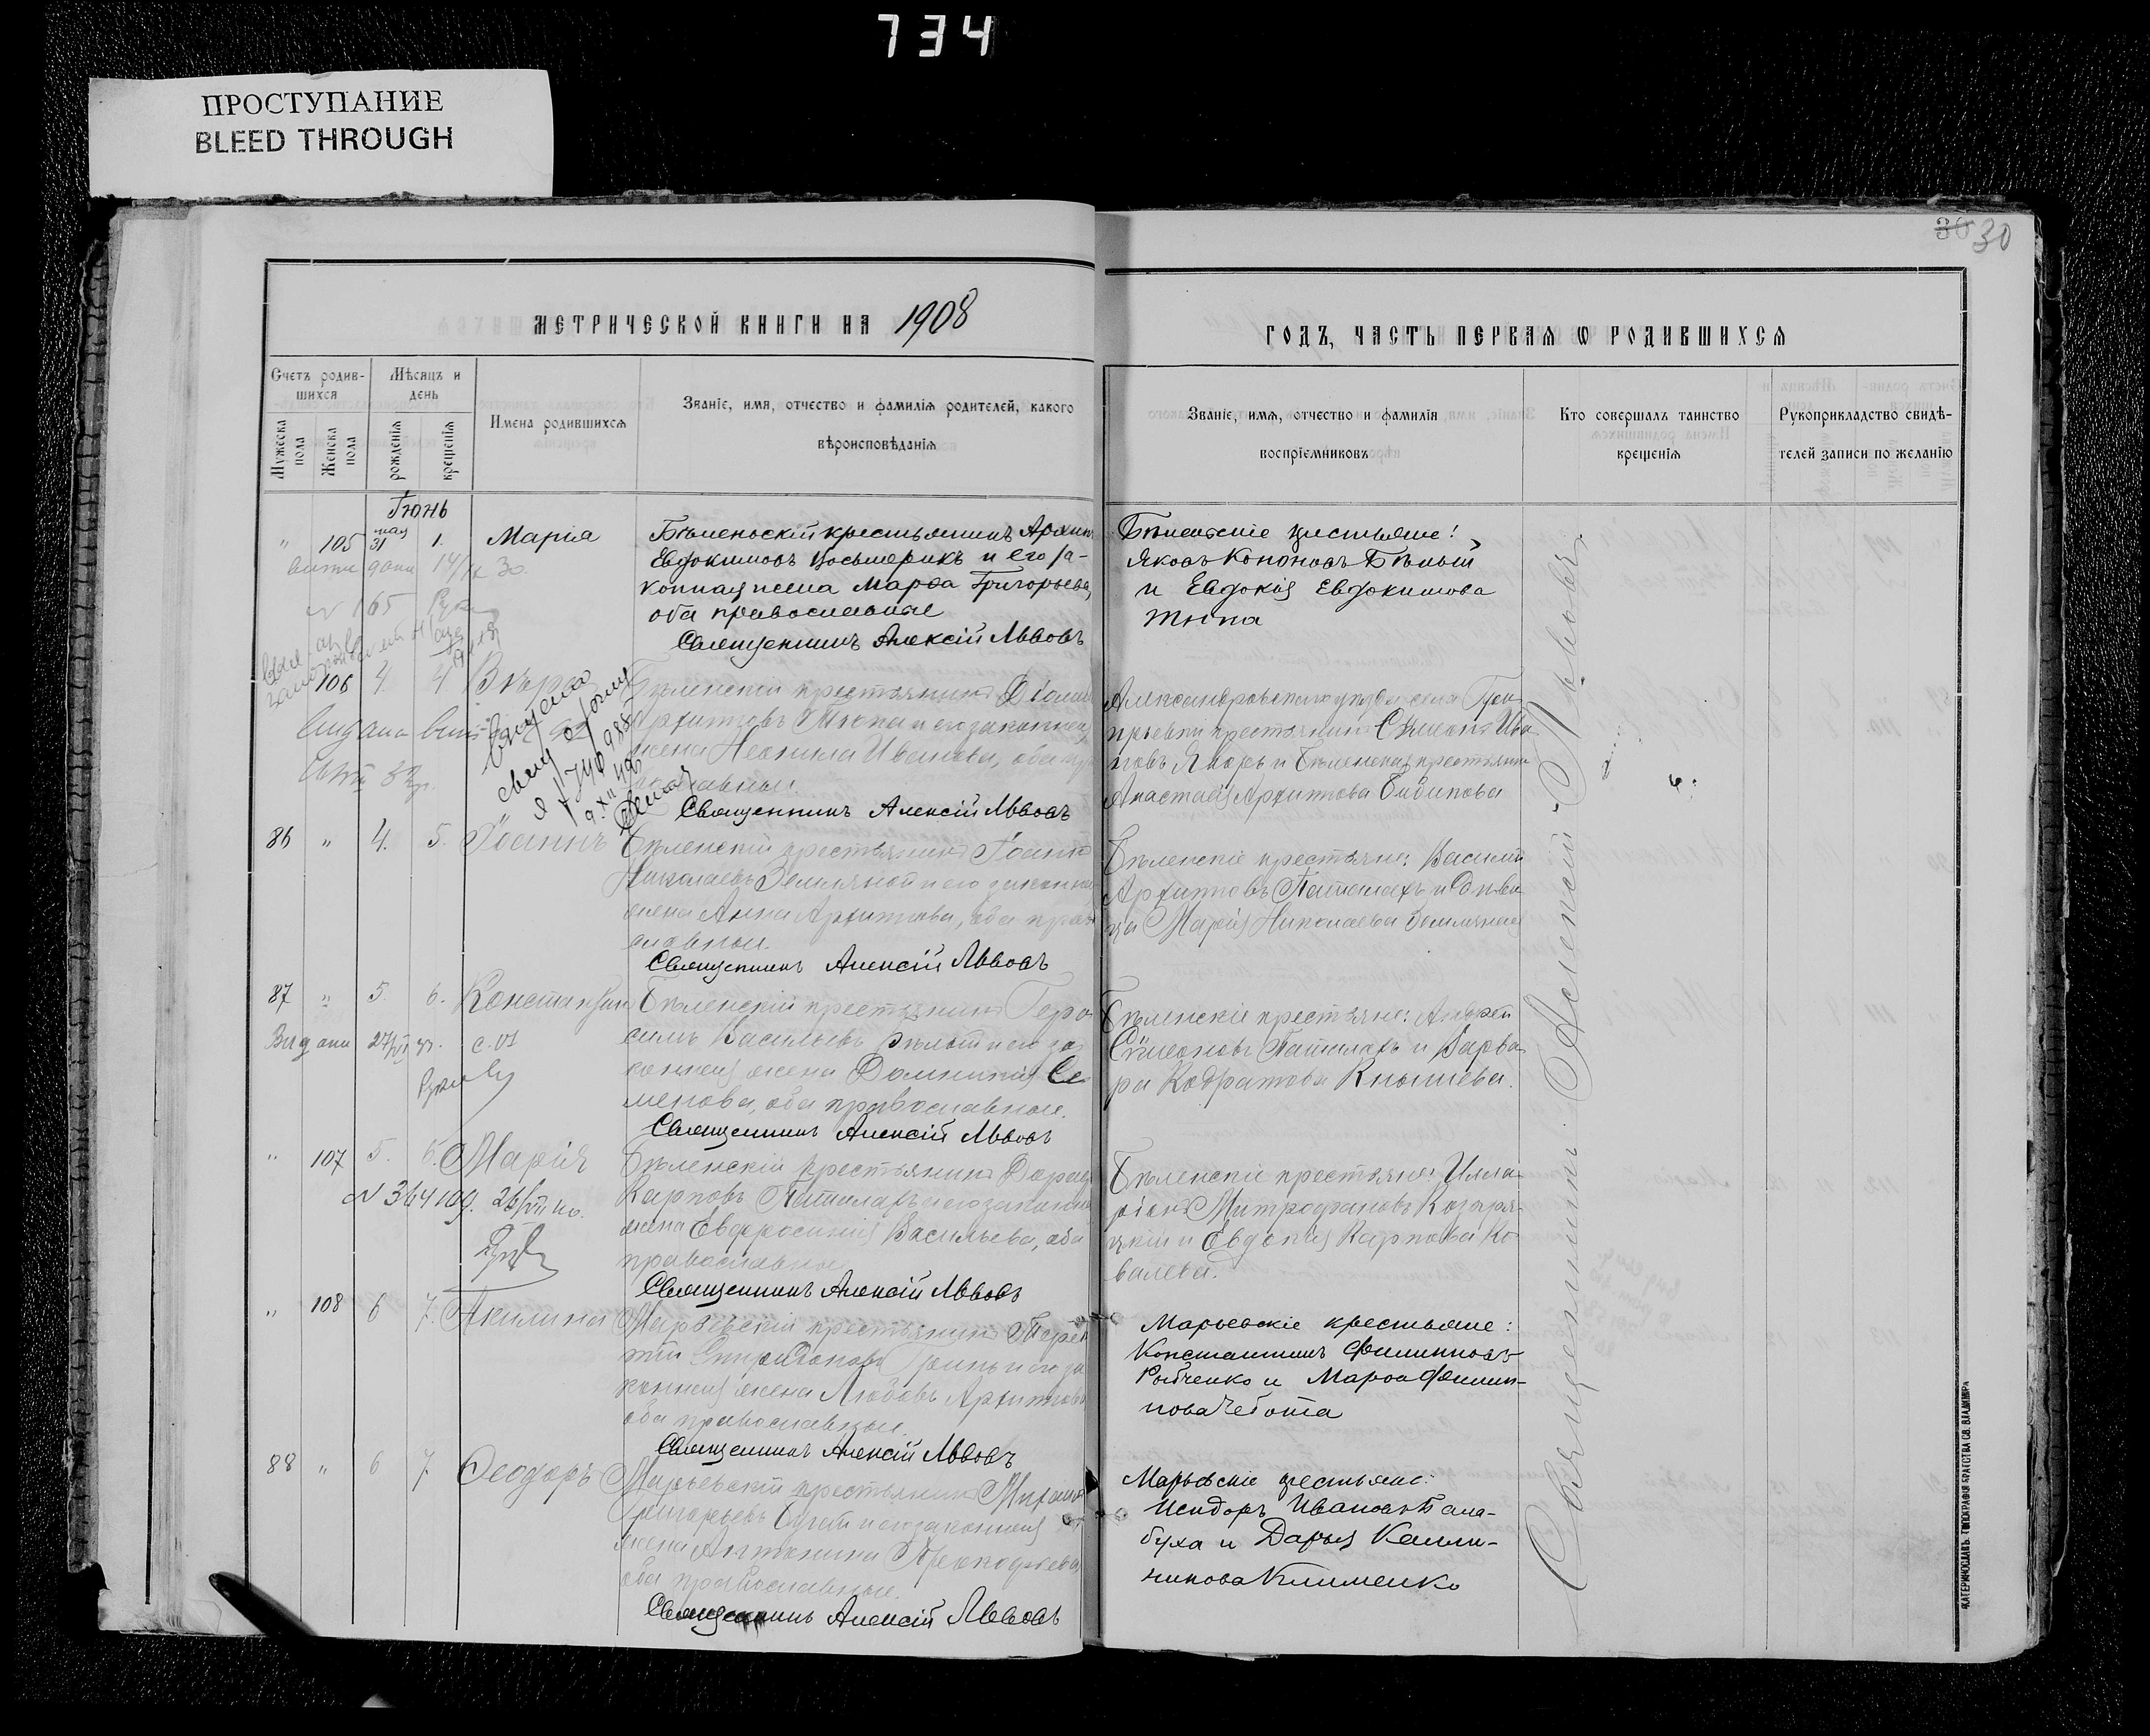 734
ПРОСТУПАНИЕ
BLEED THROUGH
30 30
МЕТРИЧЕСКОЙ КНИГИ НА 1908
ГОДЪ, ЧАСТЬ ПЕРВАЯ Ѡ РОДИВШИХСЯ
Счетъ родив-
шихся
Мужеска пола
Женска пола
Мѣсяцъ и
день
рожденія
крещенія
Имена родившихся
Званіе, имя, отчество и фамилія родителей, какого
вѣроисповѣданія
Званіе, имя, отчество и фамилія
воспріемниковъ
Кто совершалъ таинство
крещенія
Рукоприкладство свидѣ-
телей записи по желанію
Іюнь
" 105 мая 31 1. Марія
Бѣленьскій крестьянинъ Архип
Евдокимовъ Восьмерикъ и его за-
конная жена Марѳа Григорьева,
оба православные
Священникъ Алексій Львовъ
Бѣленьскіе крестьяне:
Яковъ Кононовъ Бѣлый
и Евдокія Евдокимова
Тюпа
106 4. 4 Вѣра
Бѣленскій крестьянинъ
Архиповъ Тюпа и его законная
жена Неонила Иванова, оба пра
вославные.
Священникъ Алексій Львовъ
Александровскаго уѣзда села
крестьянинъ Симеонъ Ива
новъ Яворъ и Бѣленская крестьянка
Анастасія Архипова Бибикова
86 " 4. 5. Іоаннъ
Бѣленскій крестьянинъ Іоаннъ
Николаевъ Земляной и его законная
жена Анна Архипова, оба право
славные.
Священникъ Алексій Львовъ
Бѣленскіе крестьяне: Василій
Архиповъ Паталахъ и дѣви
ца Марія Николаева Земляная
87 " 5. 6. Константинъ
Бѣленскій крестьянинъ Гера
симъ Васильевъ Бѣлый и его за
конная жена Домникія Се
менова, оба православные.
Священникъ Алексій Львовъ
Бѣленскіе крестьяне: Андрей
Симеоновъ Паталахъ и Варва
ра Кодратова Кнышева.
" 107 5. 6. Марія
Бѣленскій крестьянинъ
Карповъ Паталахъ и его законная
жена Евфросинія Васильева, оба
православные
Священникъ Алексій Львовъ
Бѣленскіе крестьяне: Илла
ріонъ Митрофановъ
и Евдокія Карпова Ко
валева.
" 108 6 7. Акилина
Марьевскій крестьянинъ Терен
тій Спиридоновъ и его за
конная жена Любовь Архипова
оба православные.
Священникъ Алексій Львовъ
Марьевскіе крестьяне:
Константинъ Филипповъ
Рыбченко и Марѳа Филип-
пова Чебота
88 " 6 7 Ѳеодоръ
Марьевскій крестьянинъ Михаилъ
Григорьевъ и его законная
жена Антонина Прокофьева
оба православные.
Священникъ Алексій Львовъ
Марьевскіе крестьяне:
Исидоръ Ивановъ Бала-
буха и Дарья Калли-
никова Клименко
Священникъ Алексій Львовъ
ЕКАТЕРИНОСЛАВЪ. ТИПОГРАФІЯ БРАТСТВА СВ. ВЛАДИМІРА